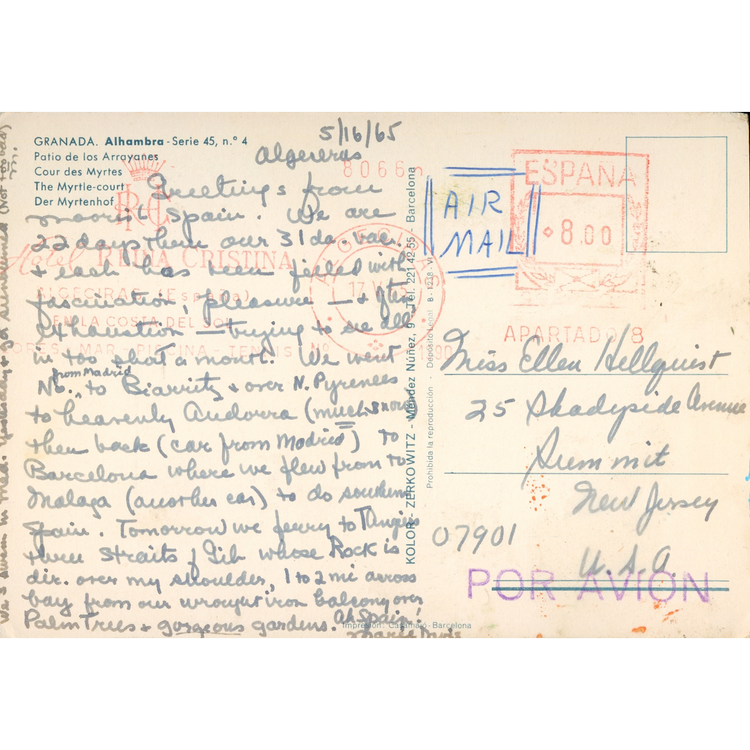 GRANADA. Alhambra - Serie 45, n.° 4
Patio de los Arrayanes
Cour des Myrtes
The Myrtle-court
Der Myrtenhof
5/16/65
Algeciras
Greetings from
moorish Spain. We are
22 days thru our 31 da. vac.
& each has been filled with
fascination, pleasure — & often
exhaustion — trying to see all
in too short a month. We went
No. from Madrid to Biarritz & over N. Pyrenees
to heavenly Andorra (much snow)
then back (car from Madrid) to
Barcelona where we flew from to
Malaga (another car) to do southern
Spain. Tomorrow we ferry to Tangier
thru Straits of Gib whose Rock is
dir. over my shoulder, 1 to 2 mi across
bay from our wrought iron balcony over
Palm Trees & gorgeous gardens. Ah Spain!
We swam in Med. yesterday & got sunburned (Not too bad)
Hotel REINA CRISTINA
ALGECIRAS (España)
EN LA COSTA DEL SOL
MAR PISCINA TENNIS
RC
8066
ALGECIRAS
17 V 65
KOLOR - ZERKOWITZ - Méndez Núñez, 9 - Tel. 221 42 55 - Barcelona
Prohibida la reproducción - Depósito Legal B-1238-VI
Impresión: Casamajó - Barcelona
AIR
MAIL
ESPAÑA
8.00
APARTADO 8
Miss Ellen Hellquist
25 Shadyside Avenue
Summit
New Jersey
07901
U.S.A.
POR AVION